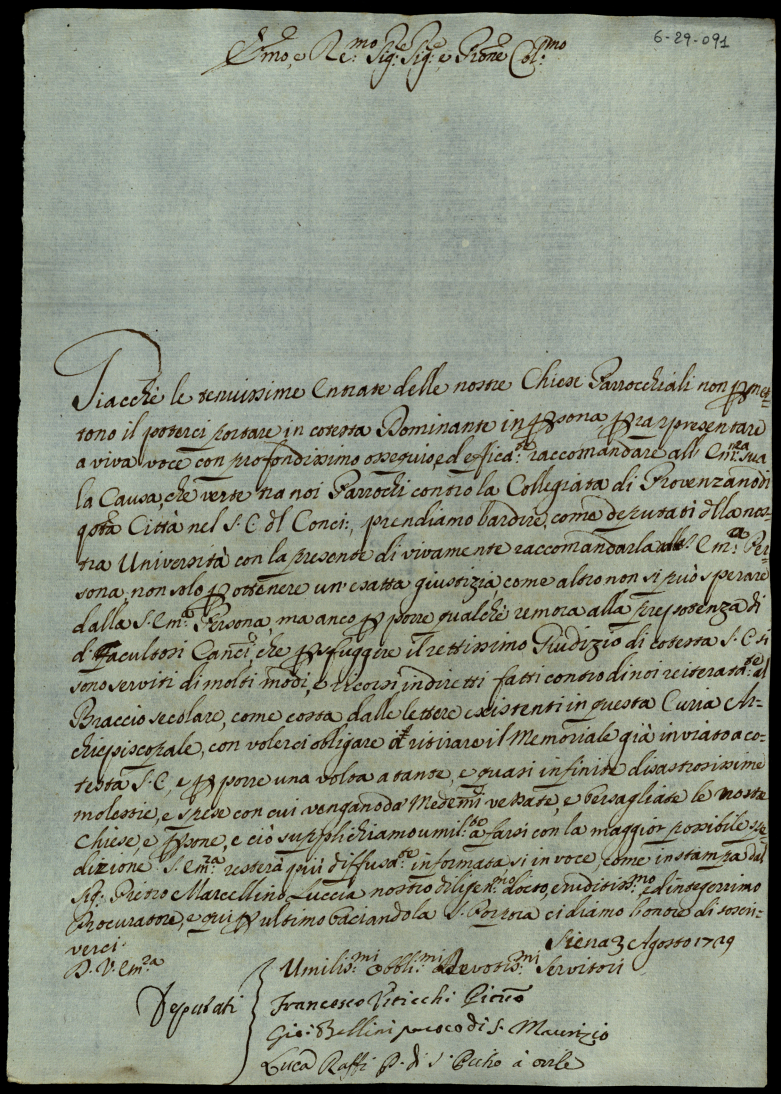 6-29-091
Emo, e Re:mo Sig:e Sig:e, e Prone Col:mo
Giacché le tenuissime Entrate delle nostre Chiese Parrocchiali non pmet-
tono il poterci portare in cotesta Dominante in psona, p rappresentare
a viva voce con profondissimo ossequio, ed effica:te raccomandare all' Em:nza Sua
la Causa, che verte tra noi Parrochi contro la Collegiata di Provenzano di
qsta Città nel S. C. dl Conci:, prendiamo l'ardire, come deputati dlla nos-
tra Università con la presente di vivamente raccomandarla alla S. Em:a Per-
sona, non solo p ottenere un' esatta giustizia, come altro non si può sperare
dalla S. Em:a Persona, ma anco p porre qualche remora alla prepotenza di
d:i Facultosi Canci, che p sfuggire il rettissimo Giudizio di cotesta S. C. si
sono serviti di molti modi, e ricorsi indiretti fatti contro di noi reiterata:te al
Braccio secolare, come costa dalle lettere esistenti in questa Curia Ar-
chiepiscopale, con volerci obligare a ritirare il Memoriale già inviato a co-
testa S. C., e p porre una volta a tante, e quasi infinite disastrosissime
molestie, e spese con cui vengano da' Medemi vessate, e bersagliate le nostre
Chiese, e psone, e ciò supplichiamo umil:te a farsi con la maggior possibile spe-
dizione. S. Em:za resterà più diffusa:te informata sì in voce, come in stampa dal
Sig: Pietro Marcellino Luccia nostro diligen:mo docto, eruditiss:mo, ed integerrimo
Procuratore, e qui p ultimo baciando la S. Porpora ci diamo l'onore di soscri-
verci.
Siena 3 Agosto 1729
D. V. Em:za
Umilis:mi Obbli:mi Devotis:mi Servitori
Deputati
Francesco
Gio: Bellini paroco di S. Maurizio
Luca Raffi P. di S. Pietro à ovile